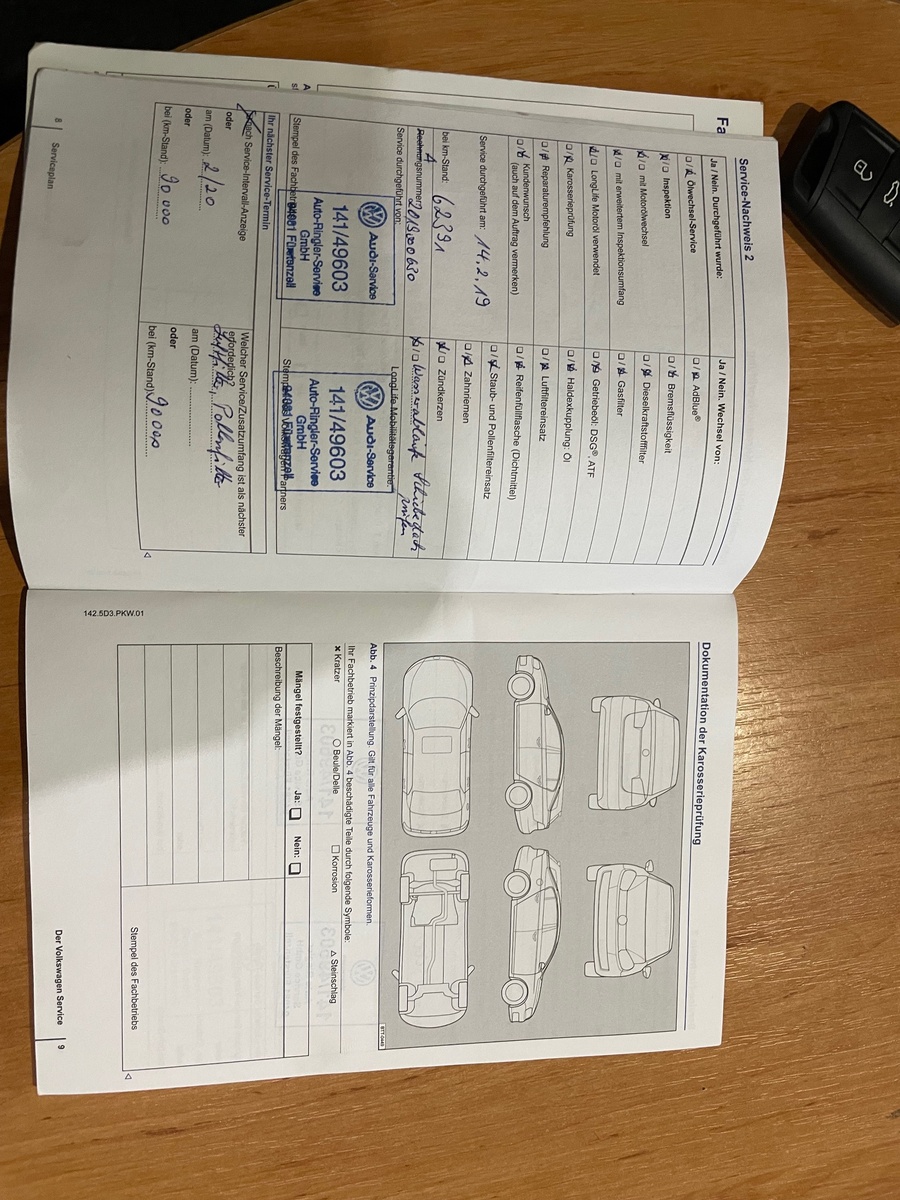 Fa
Service-Nachweis 2
Ja / Nein. Durchgeführt wurde:
Ölwechsel-Service
Inspektion
mit Motorölwechsel
mit erweitertem Inspektionsumfang
LongLife Motoröl verwendet
Karosserieprüfung
Reparaturempfehlung
Kundenwunsch
(auch auf dem Auftrag vermerken)
Service durchgeführt am: 14.2.19
bei km-Stand: 62391
A
Rechnungsnummer:
Service durchgeführt von:
Audi-Service
141/49603
Auto-Ringler-Service
GmbH
94081 Fürstenzell
Stempel des Fachbetriebs
Ja / Nein. Wechsel von:
AdBlue®
Bremsflüssigkeit
Dieselkraftstofffilter
Gasfilter
Getriebeöl: DSG®, ATF
Haldexkupplung: Öl
Luftfiltereinsatz
Reifenfüllflasche (Dichtmittel)
Staub- und Pollenfiltereinsatz
Zahnriemen
Zündkerzen
Wasserabläufe Schiebedach
prüfen
LongLife Mobilitätsgarantie:
Audi-Service
141/49603
Auto-Ringler-Service
GmbH
94081 Fürstenzell
Ihr nächster Service-Termin
nach Service-Intervall-Anzeige
oder
am (Datum): 2/20
oder
bei (km-Stand): 90 000
Welcher Service/Zusatzumfang ist als nächster
erforderlich?
Luftfilter, Pollenfilter
am (Datum):
oder
bei (km-Stand) 90 000
8 Serviceplan
142.5D3.PKW.01
Dokumentation der Karosserieprüfung
B1T-0449
Abb. 4 Prinzipdarstellung. Gilt für alle Fahrzeuge und Karosserieformen.
Ihr Fachbetrieb markiert in Abb. 4 beschädigte Teile durch folgende Symbole:
× Kratzer ○ Beule/Delle □ Korrosion △ Steinschlag
Mängel festgestellt? Ja: Nein:
Beschreibung der Mängel:
Stempel des Fachbetriebs
Der Volkswagen Service 9